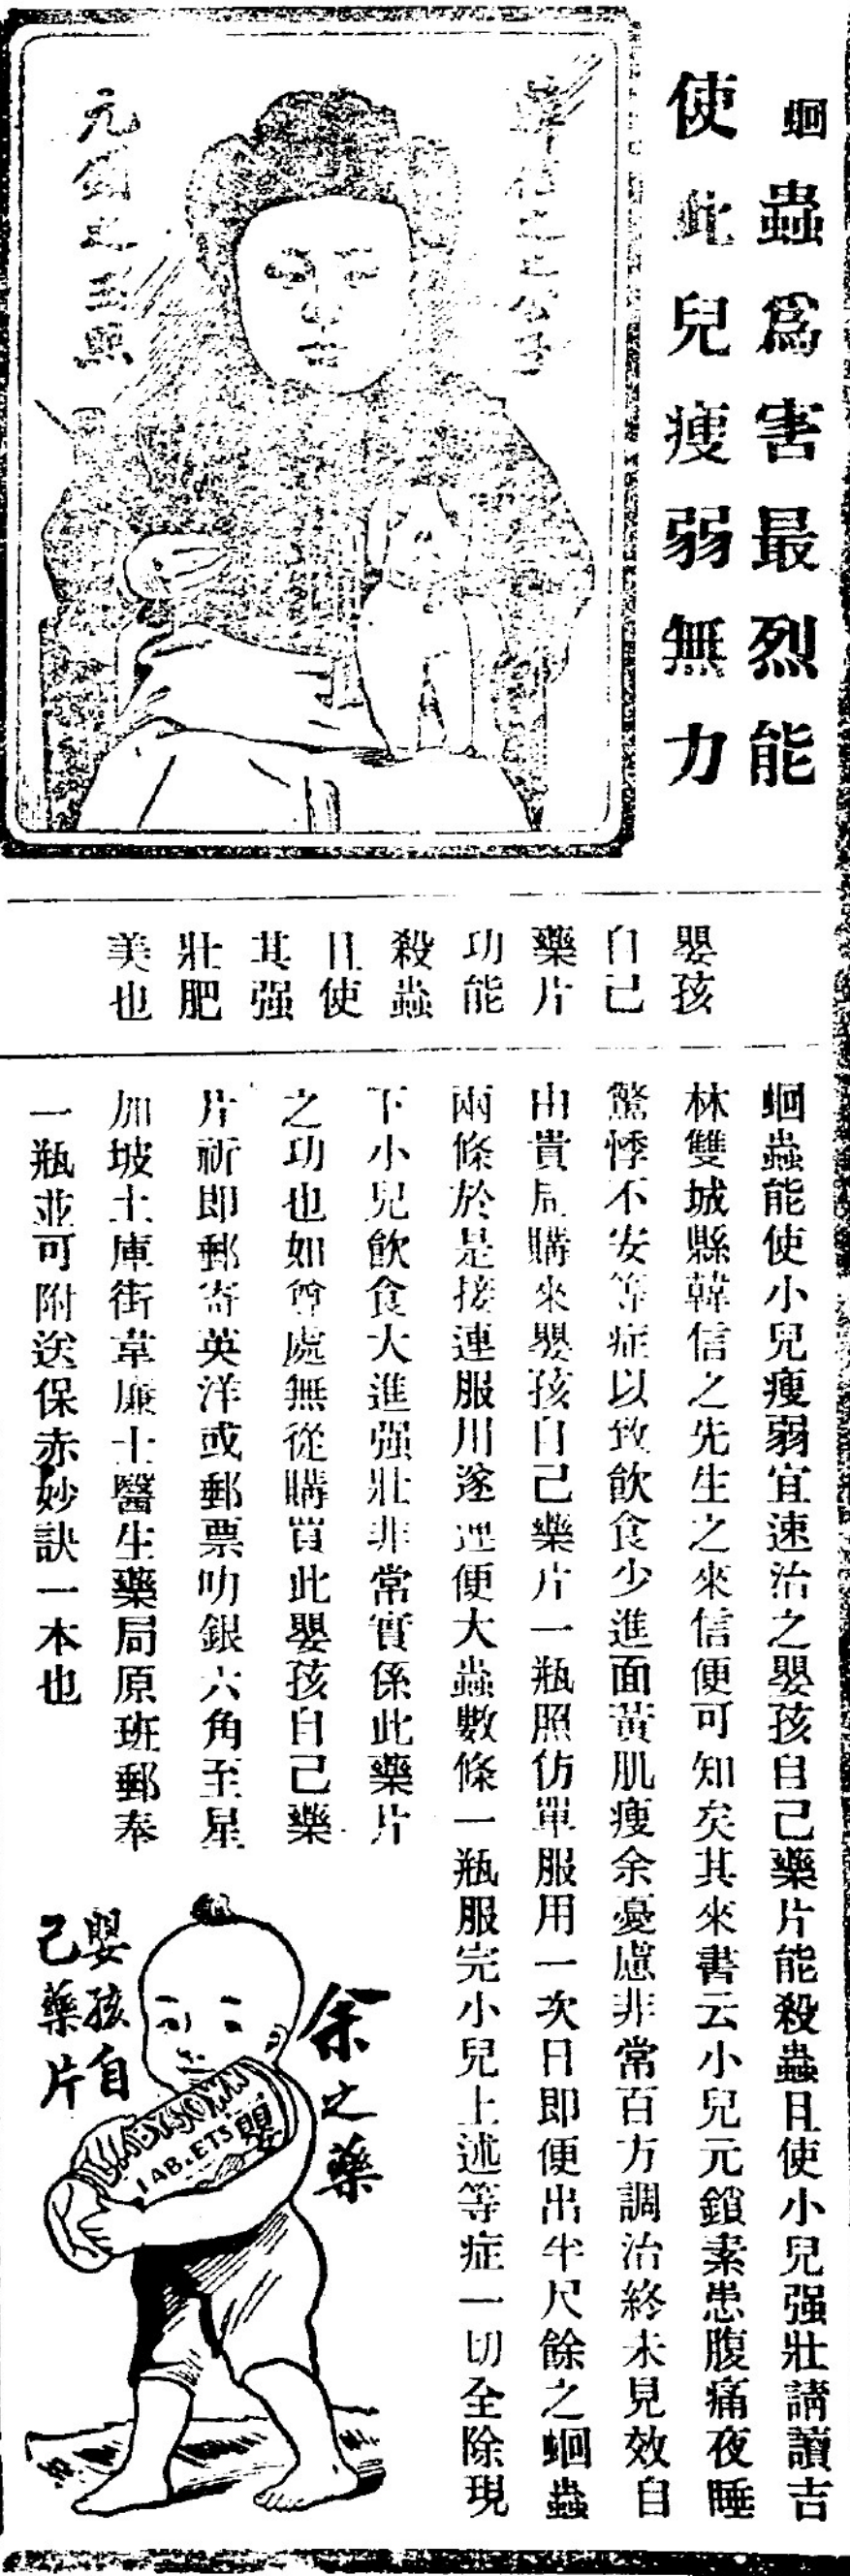 蛔蟲爲害最烈能
使此兒瘦弱無力
韓信之之公子
元鎖之玉照
嬰孩
自己
藥片
功能
殺蟲
且使
其强
壯肥
美也
蛔蟲能使小兒瘦弱宜速治之嬰孩自己藥片能殺蟲且使小兒强壯請讀吉
林雙城縣韓信之先生之來信便可知矣其來書云小兒元鎖素患腹痛夜睡
驚悸不安等症以致飲食少進面黃肌瘦余憂慮非常百方調治終未見效自
由貴局購來嬰孩自己藥片一瓶照仿單服用一次日即便出半尺餘之蛔蟲
兩條於是接連服用遂連便大蟲數條一瓶服完小兒上述等症一切全除現
下小兒飲食大進强壯非常實係此藥片
之功也如尊處無從購買此嬰孩自己藥
片祈即郵寄英洋或郵票叻銀六角至星
加坡土庫街韋廉士醫生藥局原班郵奉
一瓶並可附送保赤妙訣一本也
余之藥
嬰孩自
己藥片
TABLETS
嬰